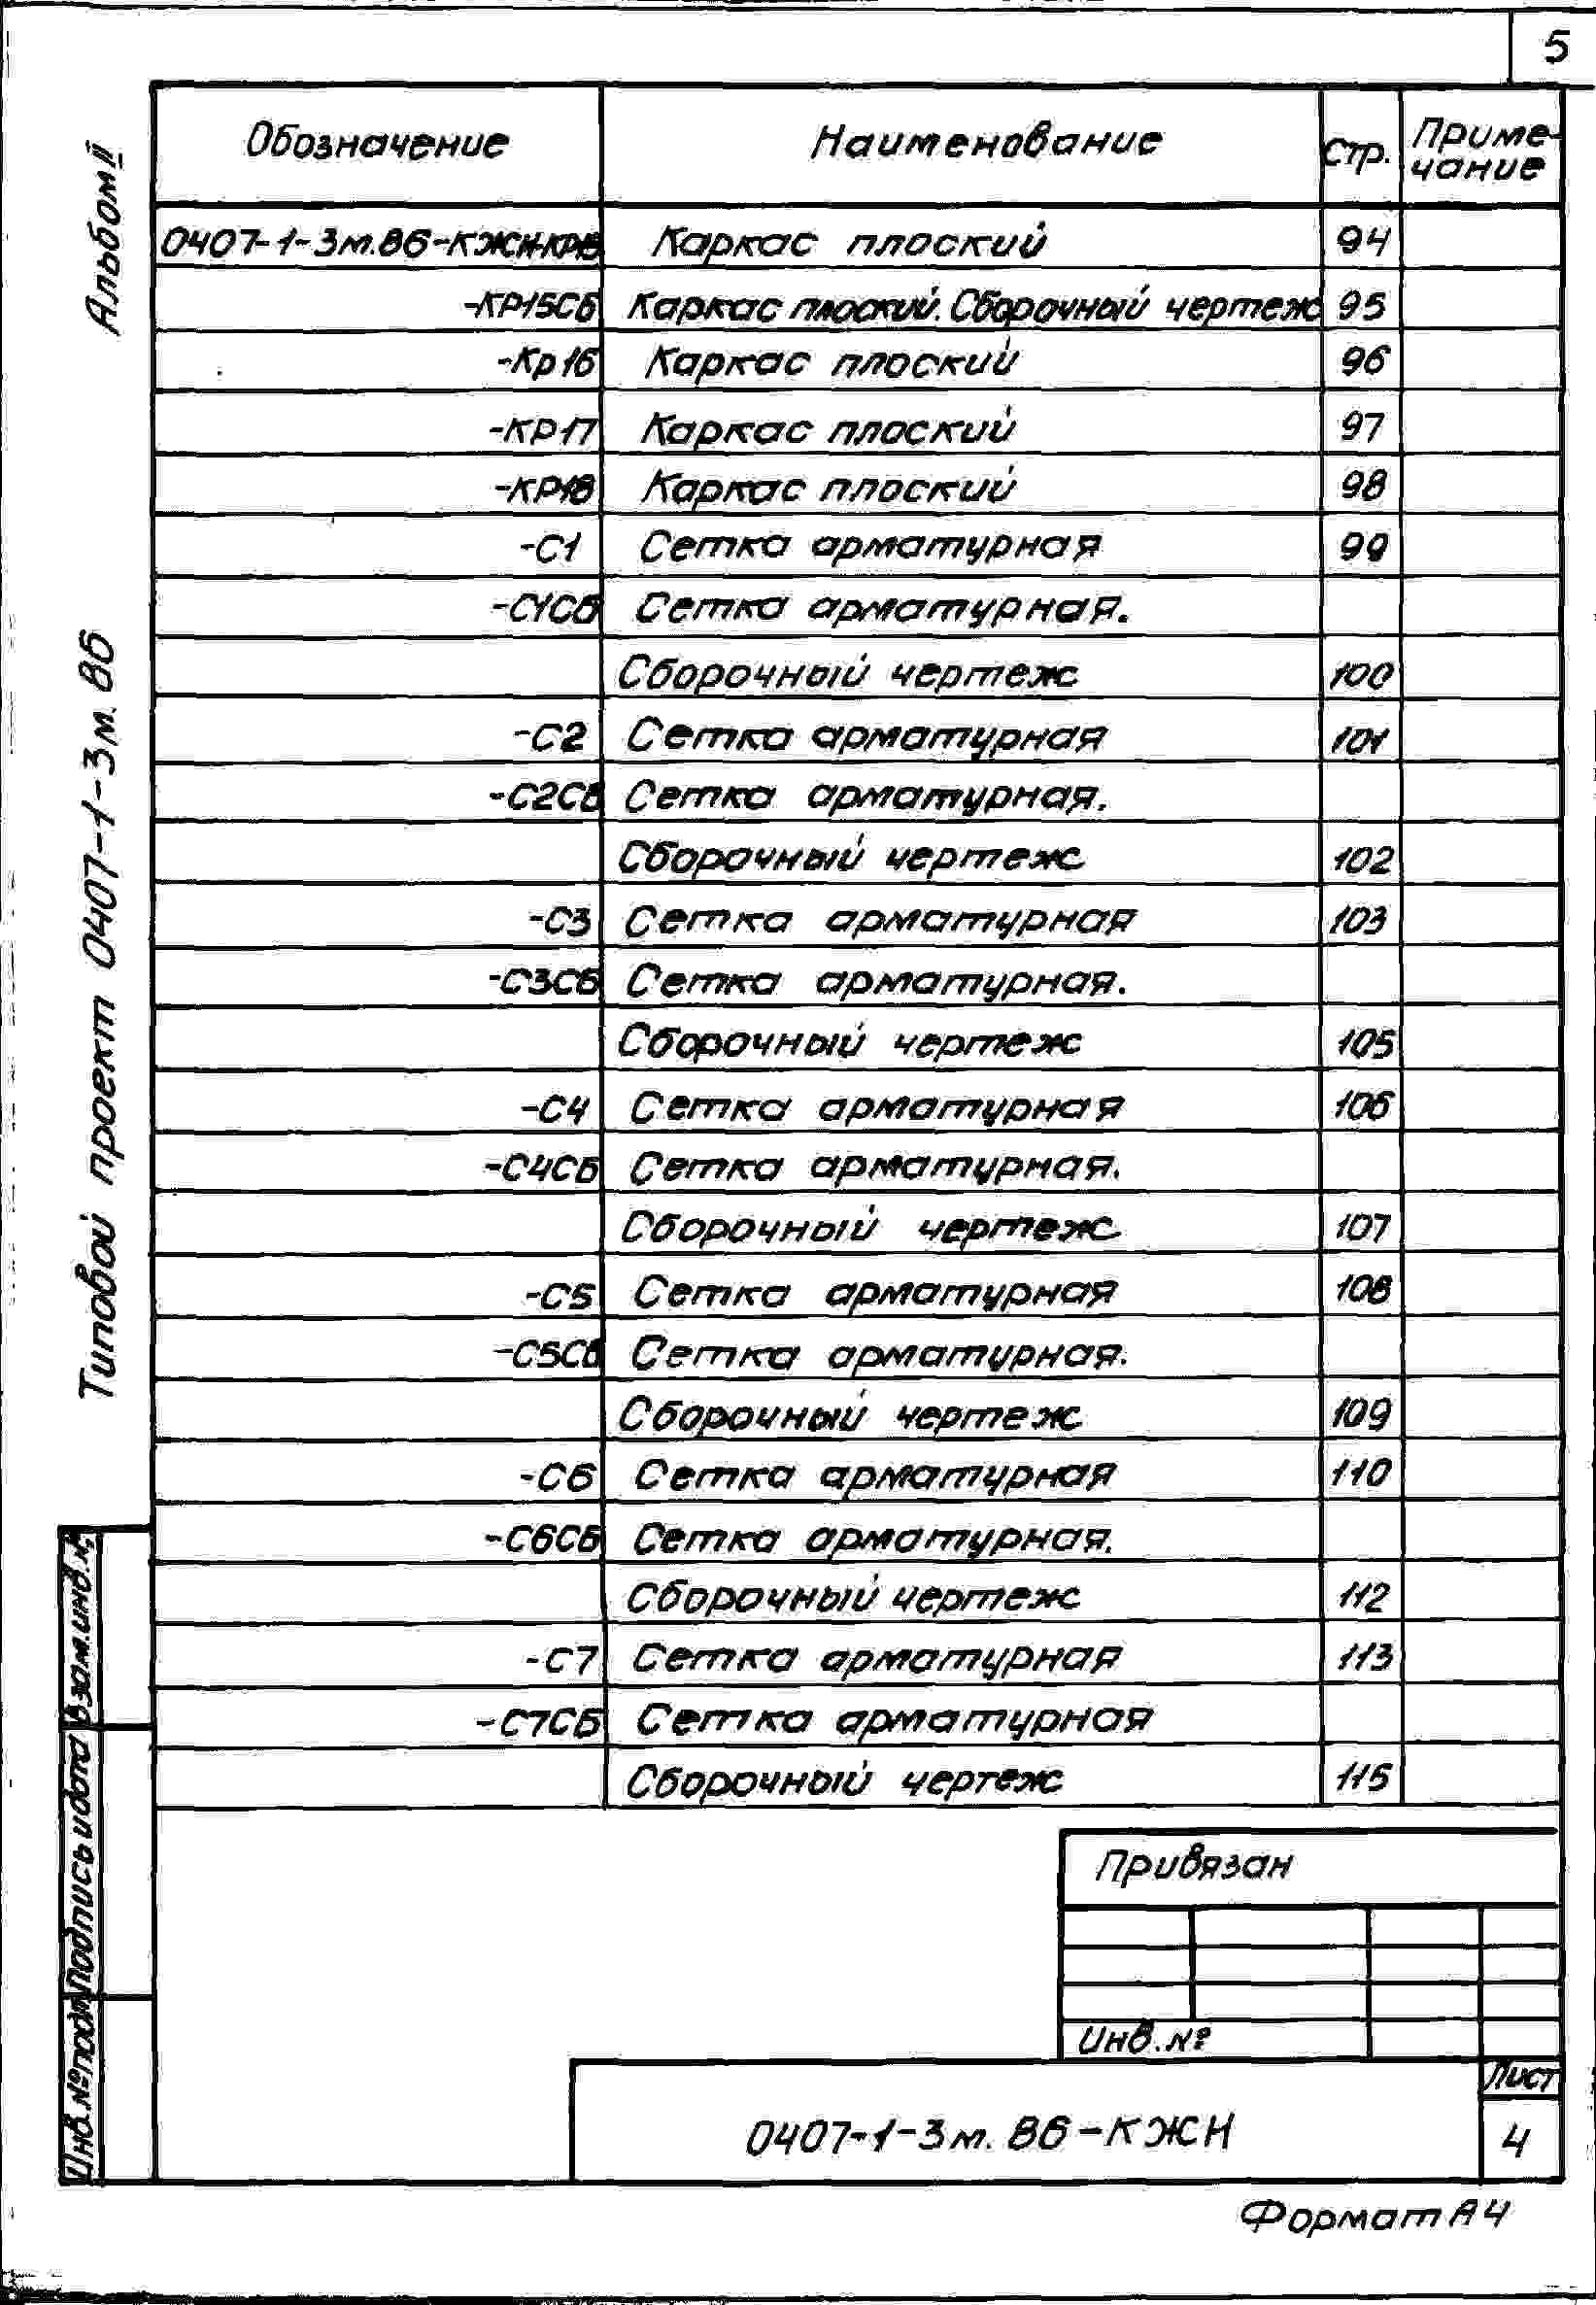 5
Альбом II
Типовой проект 0407-1-3м.86
Обозначение Наименование Стр. Приме-
чание
0407-1-3м.86-КЖН-КР15 Каркас плоский 94
-КР15СБ Каркас плоский. Сборочный чертеж 95
-Кр16 Каркас плоский 96
-КР17 Каркас плоский 97
-КР18 Каркас плоский 98
-С1 Сетка арматурная 99
-С1СБ Сетка арматурная.
Сборочный чертеж 100
-С2 Сетка арматурная 101
-С2СБ Сетка арматурная.
Сборочный чертеж 102
-С3 Сетка арматурная 103
-С3СБ Сетка арматурная.
Сборочный чертеж 105
-С4 Сетка арматурная 106
-С4СБ Сетка арматурная.
Сборочный чертеж 107
-С5 Сетка арматурная 108
-С5СБ Сетка арматурная.
Сборочный чертеж 109
-С6 Сетка арматурная 110
-С6СБ Сетка арматурная.
Сборочный чертеж 112
-С7 Сетка арматурная 113
-С7СБ Сетка арматурная
Сборочный чертеж 115
Взам.инв.№
Подпись и дата
Инв.№подл
Привязан
Инв.№
0407-1-3м.86-КЖН
Лист
4
Формат А4